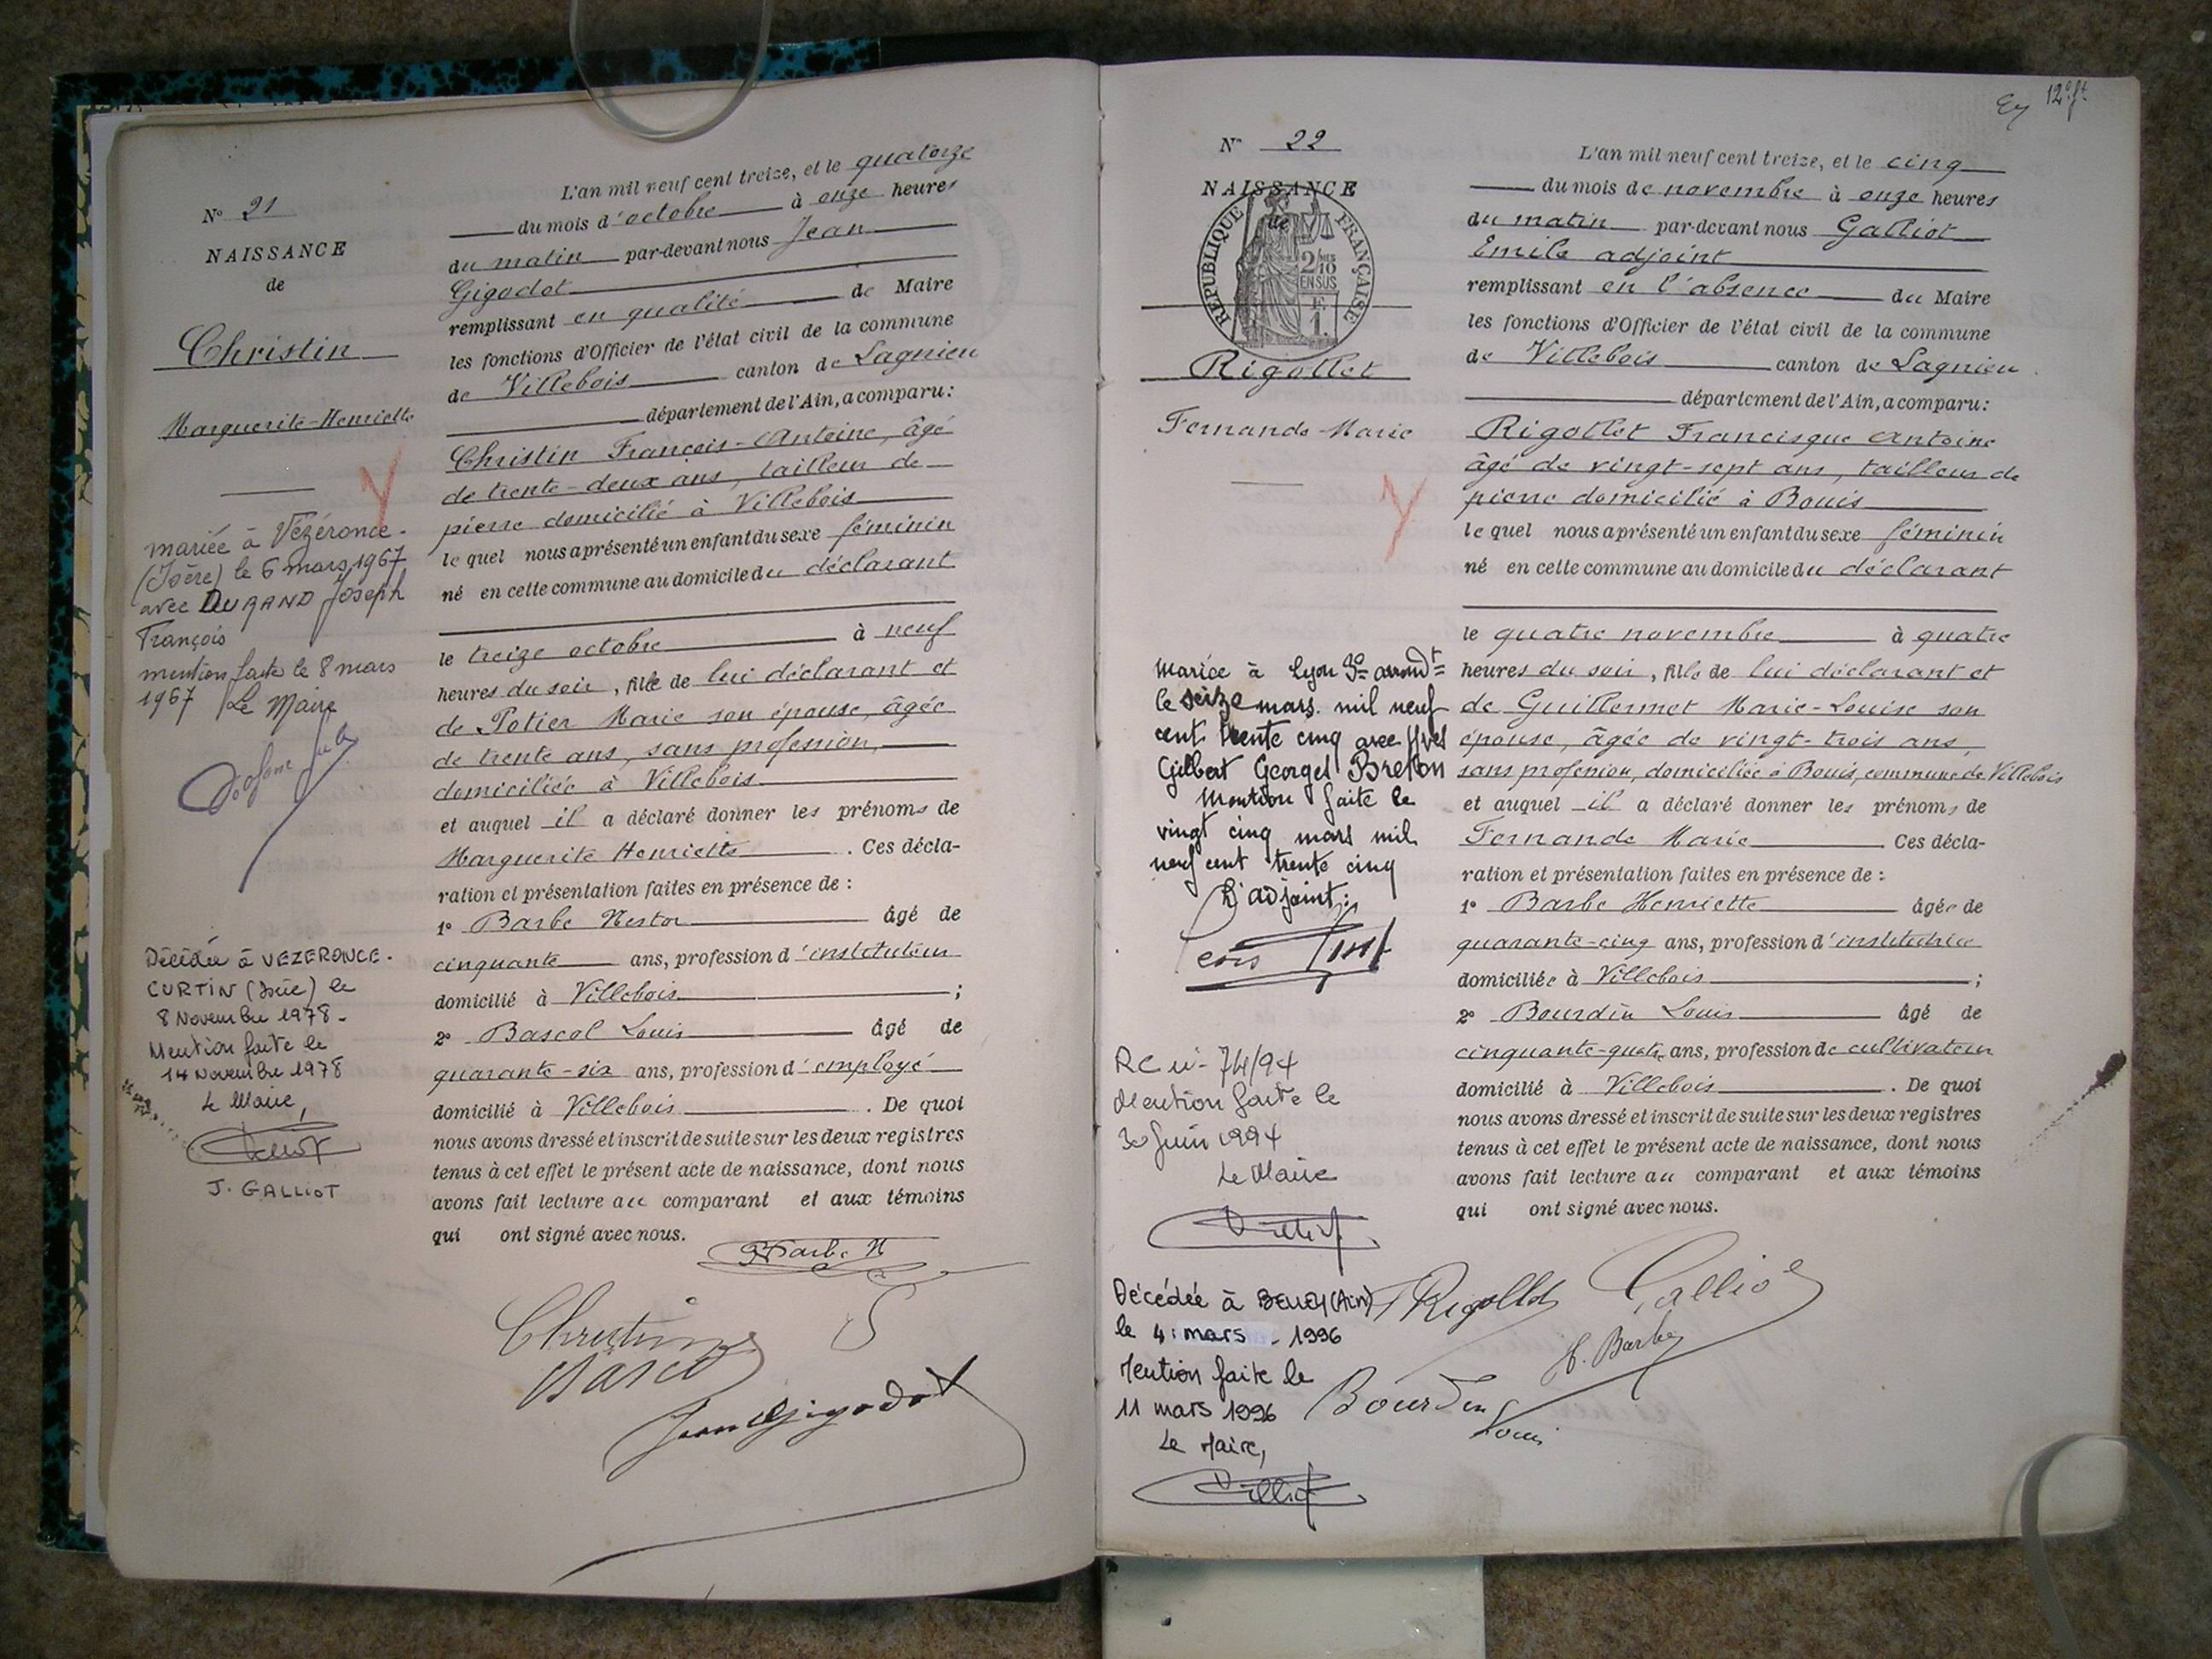 N° 21
NAISSANCE
de
Christin
Marguerite-Henriette
mariée à Vézéronce-
(Isère) le 6 mars 1967
avec DURAND Joseph
François
mention faite le 8 mars
1967 Le Maire
Décédée à VEZERONCE-
CURTIN (Isère) le
8 Novembre 1978-
Mention faite le
14 Novembre 1978
Le Maire,
J. GALLIOT
L'an mil neuf cent treize, et le quatorze
du mois d'octobre à onze heures
du matin par-devant nous Jean
Gigodot
remplissant en qualité de Maire
les fonctions d'Officier de l'état civil de la commune
de Villebois canton de Lagnieu
département de l'Ain, a comparu:
Christin François-Antoine, âgé
de trente-deux ans, tailleur de
pierre domicilié à Villebois
le quel nous a présenté un enfant du sexe féminin
né en cette commune au domicile du déclarant
le treize octobre à neuf
heures du soir, fille de lui déclarant et
de Potier Marie son épouse, âgée
de trente ans, sans profession,
domiciliée à Villebois
et auquel il a déclaré donner les prénoms de
Marguerite Henriette . Ces décla-
ration et présentation faites en présence de :
1° Barbe Nestor âgé de
cinquante ans, profession d'instituteur
domicilié à Villebois ;
2° Bascol Louis âgé de
quarante-six ans, profession d'employé
domicilié à Villebois . De quoi
nous avons dressé et inscrit de suite sur les deux registres
tenus à cet effet le présent acte de naissance, dont nous
avons fait lecture au comparant et aux témoins
qui ont signé avec nous.
Barbe N
Christin
Bascol
Jean Gigodot
12e ft
N° 22
NAISSANCE
de
REPUBLIQUE FRANÇAISE
2/10
EN SUS
F.
1.
Rigollet
Fernande-Marie
Mariée à Lyon 3e arrondt
le seize mars mil neuf
cent trente cinq avec Yves
Gilbert Georges Breton
Mention faite le
vingt cinq mars mil
neuf cent trente cinq
L'adjoint:
RC n° 74/94
Mention faite le
30 Juin 1994
Le Maire
Décédée à BELLEY (Ain)
le 4 mars 1996
Mention faite le
11 mars 1996
Le Maire,
L'an mil neuf cent treize, et le cinq
du mois de novembre à onze heures
du matin par-devant nous Galliot
Emile adjoint
remplissant en l'absence du Maire
les fonctions d'Officier de l'état civil de la commune
de Villebois canton de Lagnieu
département de l'Ain, a comparu:
Rigollet Francisque Antoine
âgé de vingt-sept ans, tailleur de
pierre domicilié à Bouis
le quel nous a présenté un enfant du sexe féminin
né en cette commune au domicile du déclarant
le quatre novembre à quatre
heures du soir, fille de lui déclarant et
de Guillermet Marie-Louise son
épouse, âgée de vingt-trois ans,
sans profession, domiciliée à Bouis, commune de Villebois
et auquel il a déclaré donner les prénoms de
Fernande Marie . Ces décla-
ration et présentation faites en présence de :
1° Barbe Henriette âgée de
quarante-cinq ans, profession d'institutrice
domiciliée à Villebois ;
2° Bourdin Louis âgé de
cinquante-quatre ans, profession de cultivateur
domicilié à Villebois . De quoi
nous avons dressé et inscrit de suite sur les deux registres
tenus à cet effet le présent acte de naissance, dont nous
avons fait lecture au comparant et aux témoins
qui ont signé avec nous.
F Rigollet Galliot
H. Barbe
Bourdin
Louis